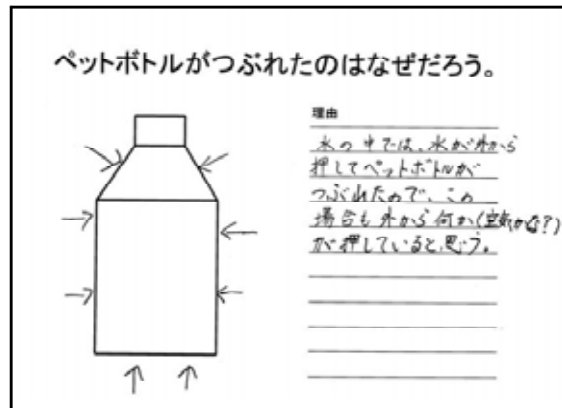 ペットボトルがつぶれたのはなぜだろう。
理由
水の中では、水が外から
押してペットボトルが
つぶれたので、この
場合も外から何か(空気かな?)
が押していると思う。